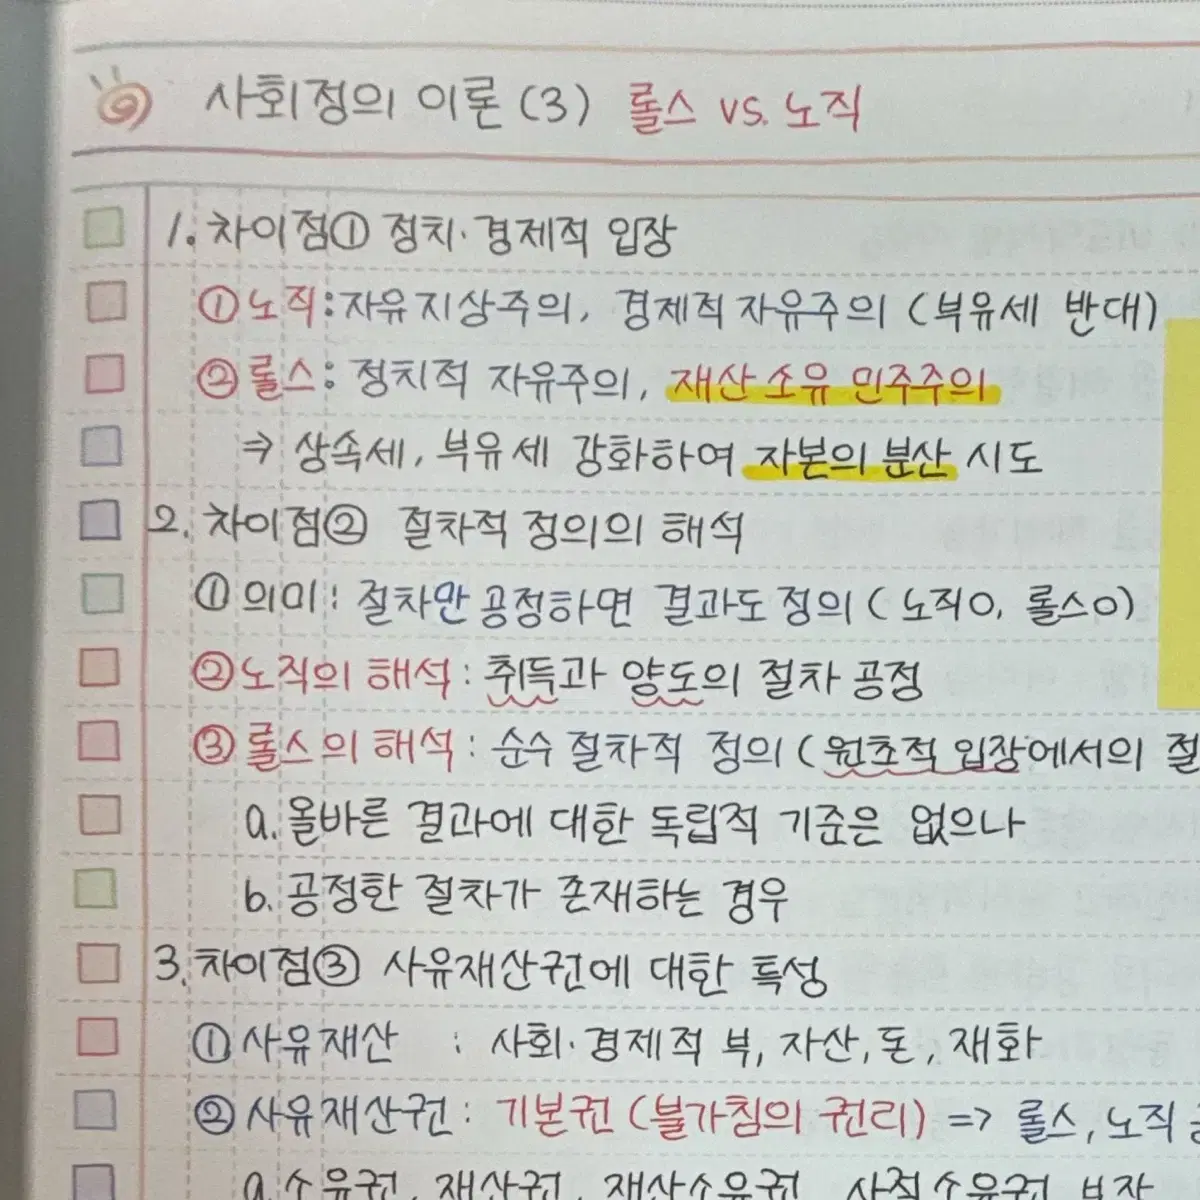 사회정의 이론 (3) 롤스 vs. 노직
1. 차이점① 정치·경제적 입장
① 노직: 자유지상주의, 경제적 자유주의 (부유세 반대)
② 롤스: 정치적 자유주의, 재산 소유 민주주의
⇒ 상속세, 부유세 강화하여 자본의 분산 시도
2. 차이점② 절차적 정의의 해석
① 의미: 절차만 공정하면 결과도 정의 (노직O, 롤스O)
② 노직의 해석: 취득과 양도의 절차 공정
③ 롤스의 해석: 순수 절차적 정의 (원초적 입장에서의 절
a. 올바른 결과에 대한 독립적 기준은 없으나
b. 공정한 절차가 존재하는 경우
3. 차이점③ 사유재산권에 대한 특성
① 사유재산 : 사회·경제적 부, 자산, 돈, 재화
② 사유재산권: 기본권 (불가침의 권리) => 롤스, 노직
a. 소유권, 재산권, 재산소유권, 사적소유권 보장